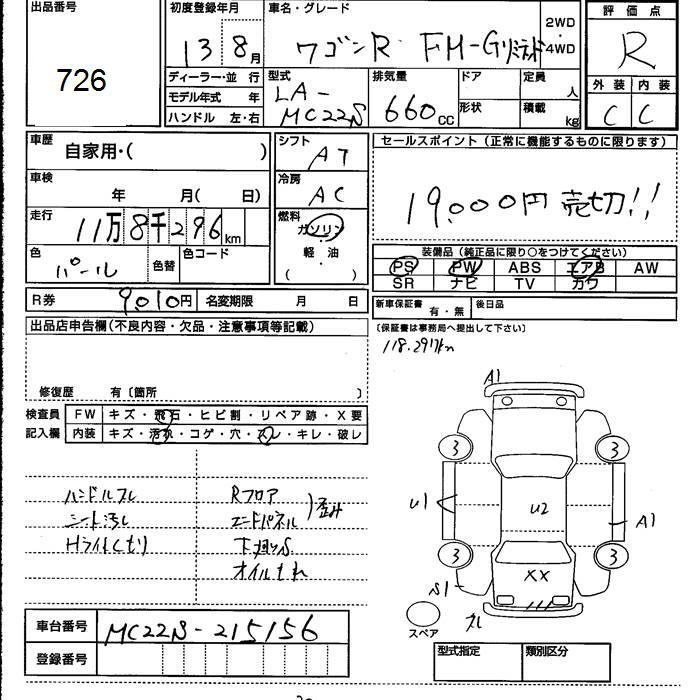 出品番号
726
初度登録年月
13 8月
車名・グレード
ワゴンR FM-Gリミテッド
2WD
・4WD
評価点
R
ディーラー・並 行
モデル年式 年
ハンドル 左・右
型式
LA-
MC22S
排気量
660cc
ドア
形状
定員
人
積載
kg
外装 内装
C C
車歴
自家用・( )
シフト
AT
セールスポイント(正常に機能するものに限ります)
19,000円 売切!!
車検
年 月( 日)
冷房
AC
走行
11万8千296km
燃料
ガソリン
・
軽 油
( )
色
パール
色替
色コード
装備品(純正品に限り○をつけてください)
PS PW ABS エアB AW
SR ナビ TV カワ
R券 9,010円 名変期限 月 日
新車保証書 有・無 後日品
(保証書は事務局へ提出して下さい)
118,297km
出品店申告欄(不良内容・欠品・注意事項等記載)
修復歴 有〔箇所 〕
検査員
記入欄
FW キズ・飛石・ヒビ割・リペア跡・X要
内装 キズ・汚れ・コゲ・穴・スレ・キレ・破レ
ハンドルスレ
シート汚し
Hライトくもり
Rフロア
エンドパネル
歪み
下廻りS
オイルもれ
A1
3 3
U1 U2 A1
3 3
XX
S1
スペア
車台番号 MC22S-215156
登録番号
型式指定 類別区分